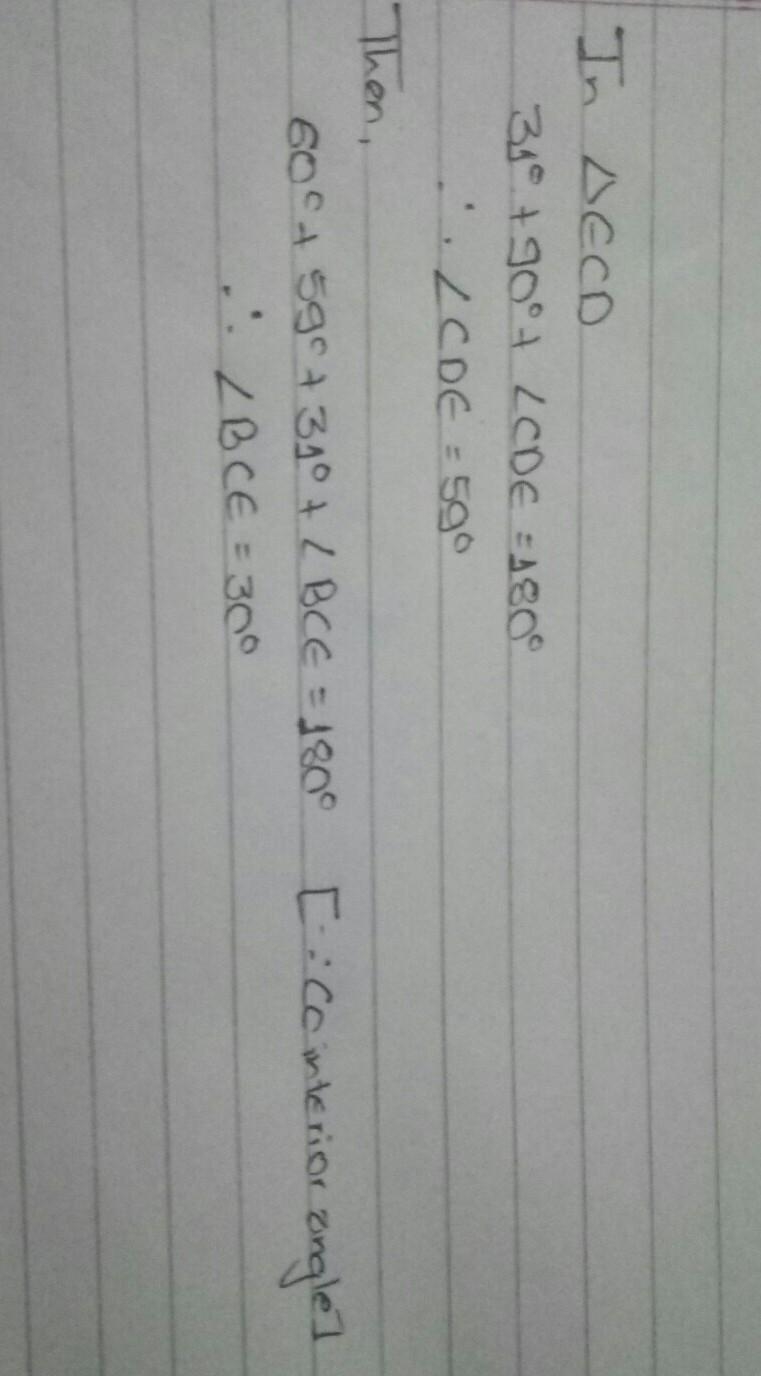 In △ECD
31° + 90° + ∠CDE = 180°
∴ ∠CDE = 59°
Then,
60° + 59° + 31° + ∠BCE = 180° [∵ Co interior angle]
∴ ∠BCE = 30°